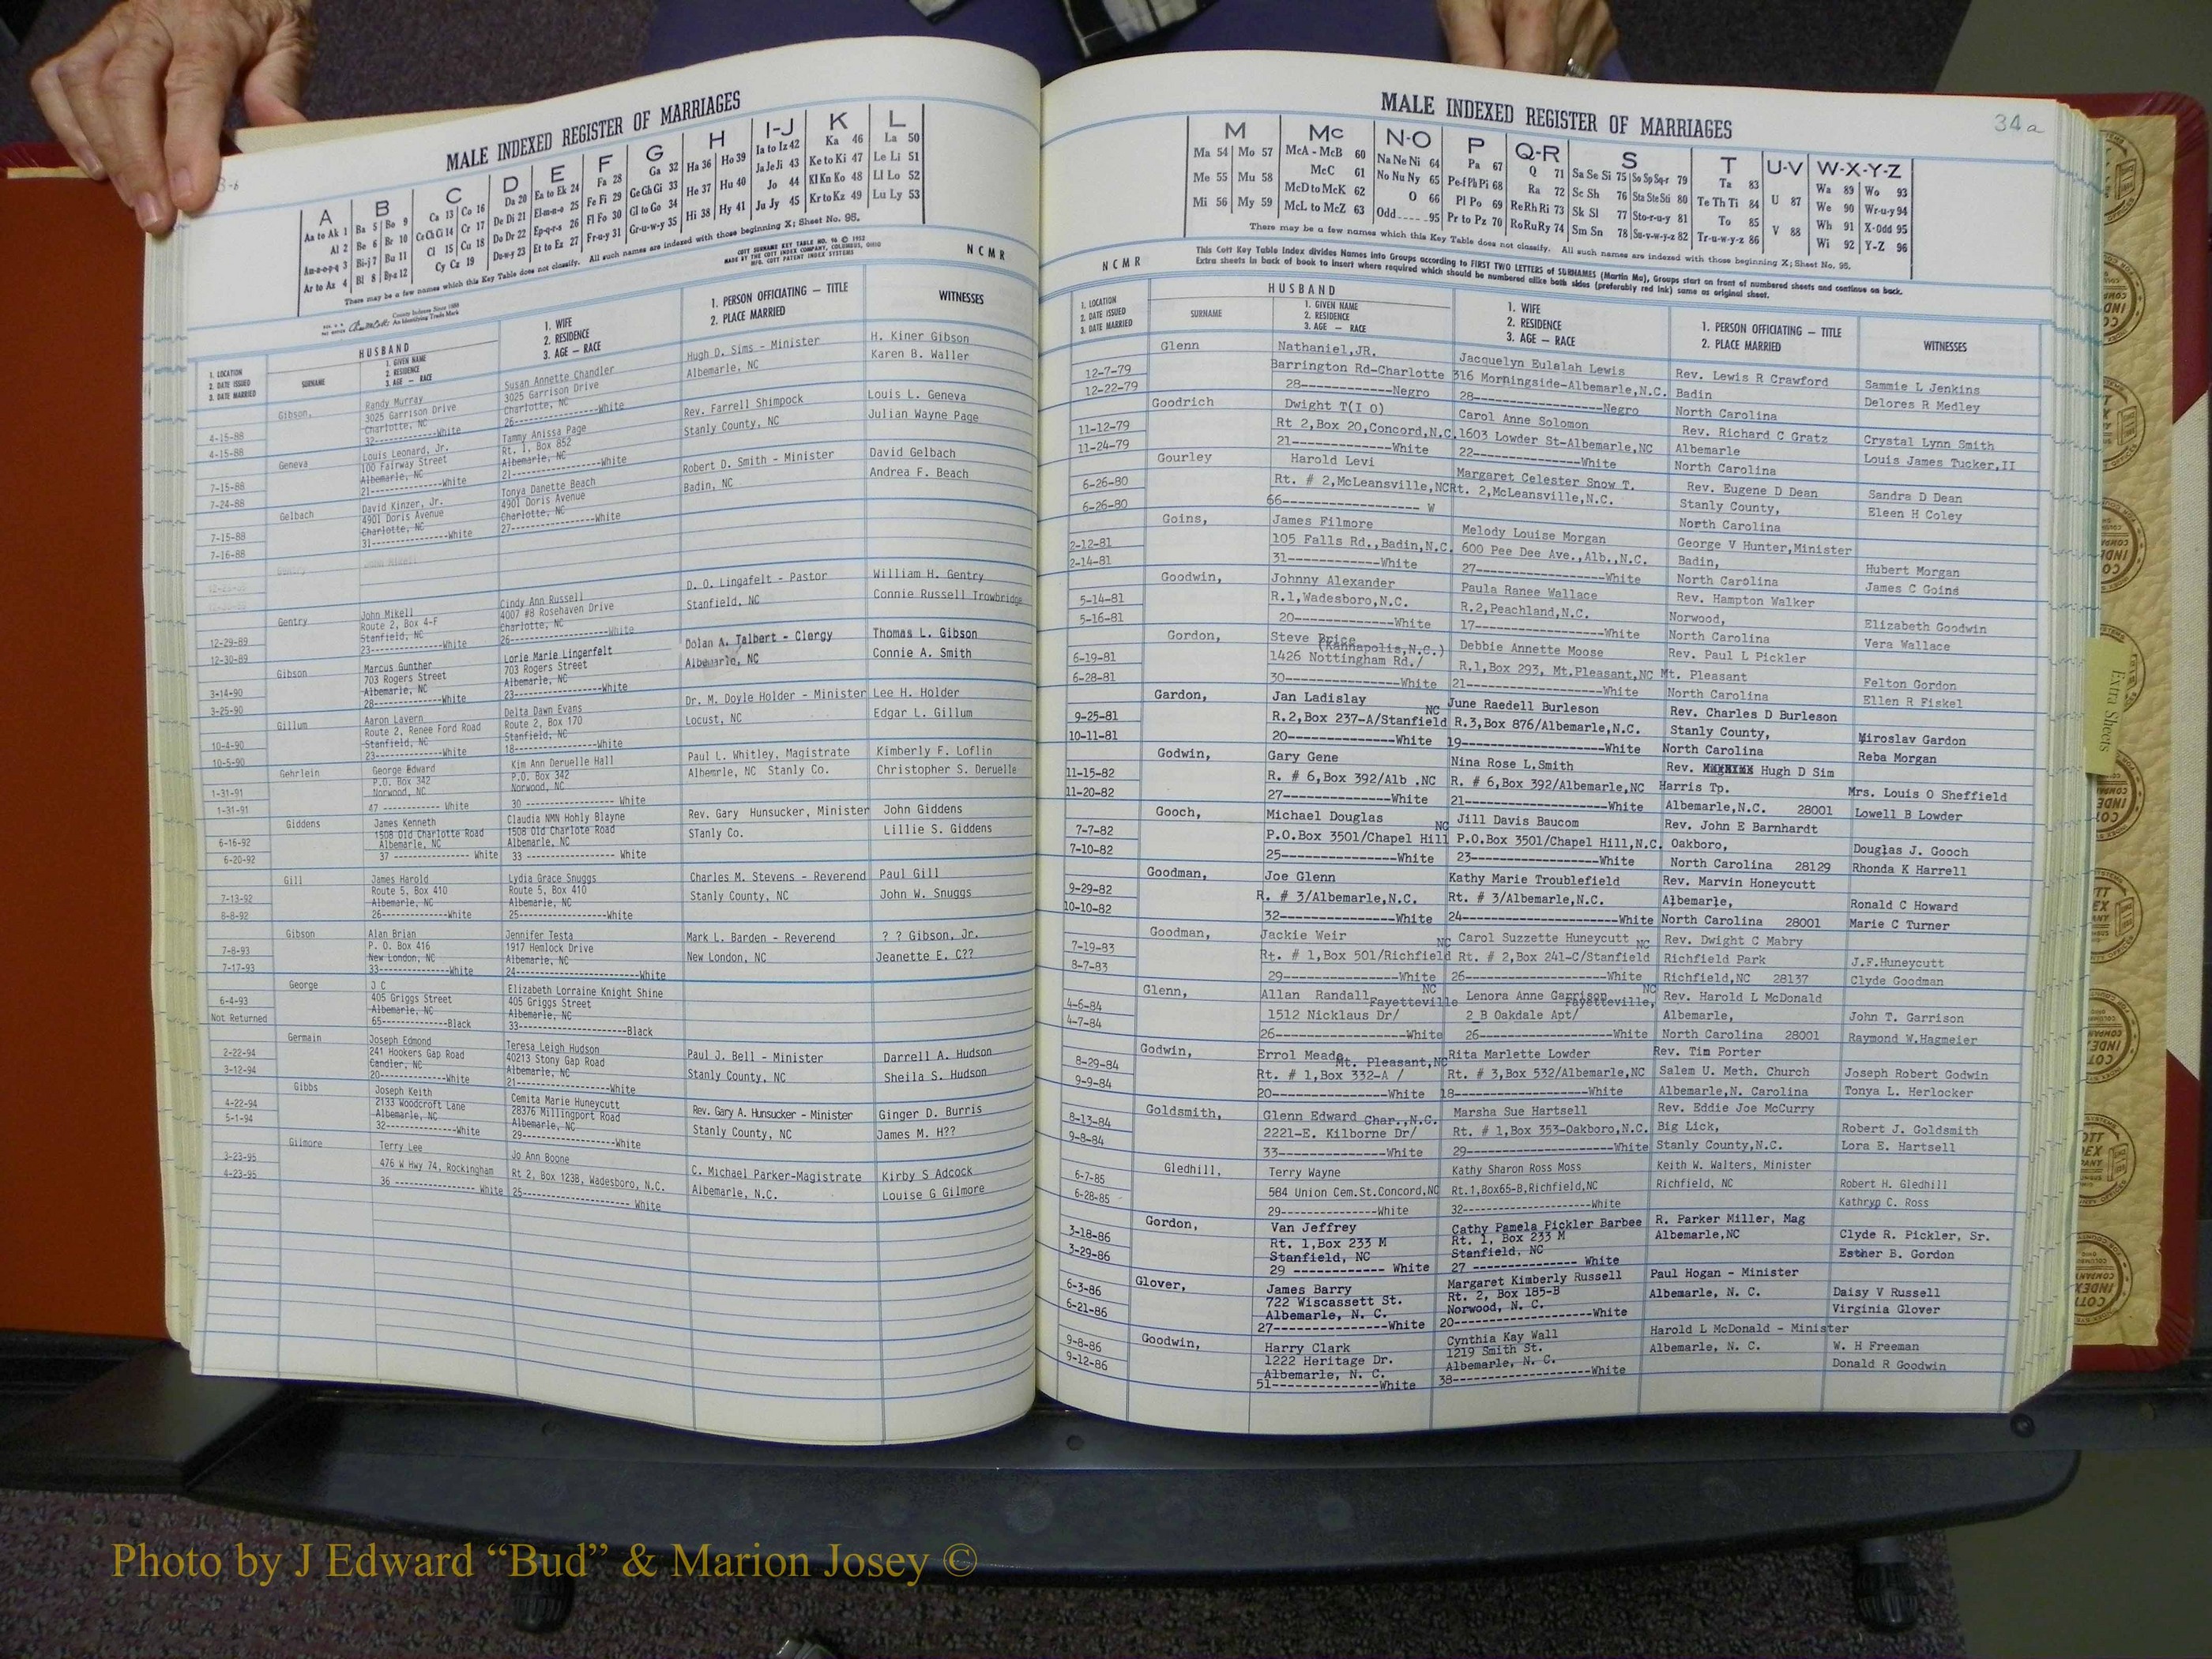 MALE INDEXED REGISTER OF MARRIAGES
A B C D E F G H I-J K L
Aa to Ak 1 Ba 5 Bo 9 Ca 13 Co 16 Da 20 Ea to Ek 24 Fa 28 Ga 32 Ha 36 Ho 39 Ia to Iz 42 Ka 46 La 50
Al 2 Be 6 Br 10 Ce Ch Ci 14 Cr 17 De Di 21 El-m-n-o 25 Fe Fi 29 Ge Gh Gi 33 He 37 Hu 40 Ja Je Ji 43 Ke to Ki 47 Le Li 51
Am-n-o-p-q 3 Bi-j 7 Bu 11 Cl 15 Cu 18 Do Dr 22 Ep-q-r-s 26 Fl Fo 30 Gl to Go 34 Hi 38 Hy 41 Jo 44 Kl Kn Ko 48 Ll Lo 52
Ar to Az 4 Bl 8 By-z 12 Cy Cz 19 Du-w-y 23 Et to Ez 27 Fr-u-y 31 Gr-u-w-y 35 Ju Jy 45 Kr to Kz 49 Lu Ly 53
There may be a few names which this Key Table does not classify. All such names are indexed with those beginning X; Sheet No. 95.
COTT SURNAME KEY TABLE NO. 96 © 1952
MADE BY THE COTT INDEX COMPANY, COLUMBUS, OHIO
MFG. COTT PATENT INDEX SYSTEMS
NCMR
County Indexes Since 1888
An Identifying Trade Mark
1. LOCATION
2. DATE ISSUED
3. DATE MARRIED
HUSBAND
SURNAME
1. GIVEN NAME
2. RESIDENCE
3. AGE — RACE
1. WIFE
2. RESIDENCE
3. AGE — RACE
1. PERSON OFFICIATING — TITLE
2. PLACE MARRIED
WITNESSES
4-15-88
4-15-88
Gibson,
Randy Murray
3025 Garrison Drive
Charlotte, NC
32-------------White
Susan Annette Chandler
3025 Garrison Drive
Charlotte, NC
26-------------White
Hugh D. Sims - Minister
Albemarle, NC
H. Kiner Gibson
Karen B. Waller
7-15-88
7-24-88
Geneva
Louis Leonard, Jr.
100 Fairway Street
Albemarle, NC
21-------------White
Tammy Anissa Page
Rt. 1, Box 852
Albemarle, NC
21-------------White
Rev. Farrell Shimpock
Stanly County, NC
Louis L. Geneva
Julian Wayne Page
7-15-88
7-16-88
Gelbach
David Kinzer, Jr.
4901 Doris Avenue
Charlotte, NC
31-------------White
Tonya Danette Beach
4901 Doris Avenue
Charlotte, NC
27-------------White
Robert D. Smith - Minister
Badin, NC
David Gelbach
Andrea F. Beach
Gentry
John Mikell
12-29-89
12-30-89
Gentry
John Mikell
Route 2, Box 4-F
Stanfield, NC
23-------------White
Cindy Ann Russell
4007 #8 Rosehaven Drive
Charlotte, NC
26-------------White
D. O. Lingafelt - Pastor
Stanfield, NC
William H. Gentry
Connie Russell Trowbridge
3-14-90
3-25-90
Gibson
Marcus Gunther
703 Rogers Street
Albemarle, NC
28-------------White
Lorie Marie Lingerfelt
703 Rogers Street
Albemarle, NC
23-------------White
Dolan A. Talbert - Clergy
Albemarle, NC
Thomas L. Gibson
Connie A. Smith
10-4-90
10-5-90
Gillum
Aaron Lavern
Route 2, Renee Ford Road
Stanfield, NC
23-------------White
Delta Dawn Evans
Route 2, Box 170
Stanfield, NC
18-------------White
Dr. M. Doyle Holder - Minister
Locust, NC
Lee H. Holder
Edgar L. Gillum
1-31-91
1-31-91
Gehrlein
George Edward
P.O. Box 342
Norwood, NC
47 ------------- White
Kim Ann Deruelle Hall
P.O. Box 342
Norwood, NC
30 ------------- White
Paul L. Whitley, Magistrate
Albemrle, NC Stanly Co.
Kimberly F. Loflin
Christopher S. Deruelle
6-16-92
6-20-92
Giddens
James Kenneth
1508 Old Charlotte Road
Albemarle, NC
37 ------------- White
Claudia NMN Hohly Blayne
1508 Old Charlote Road
Albemarle, NC
33 ------------- White
Rev. Gary Hunsucker, Minister
STanly Co.
John Giddens
Lillie S. Giddens
7-13-92
8-8-92
Gill
James Harold
Route 5, Box 410
Albemarle, NC
26-------------White
Lydia Grace Snuggs
Route 5, Box 410
Albemarle, NC
25-------------White
Charles M. Stevens - Reverend
Stanly County, NC
Paul Gill
John W. Snuggs
7-8-93
7-17-93
Gibson
Alan Brian
P. O. Box 416
New London, NC
33-------------White
Jennifer Testa
1917 Hemlock Drive
Albemarle, NC
24-------------White
Mark L. Barden - Reverend
New London, NC
? ? Gibson, Jr.
Jeanette E. C??
6-4-93
Not Returned
George
J C
405 Griggs Street
Albemarle, NC
65-------------Black
Elizabeth Lorraine Knight Shine
405 Griggs Street
Albemarle, NC
33-------------Black
2-22-94
3-12-94
Germain
Joseph Edmond
241 Hookers Gap Road
Candler, NC
20-------------White
Teresa Leigh Hudson
40213 Stony Gap Road
Albemarle, NC
21-------------White
Paul J. Bell - Minister
Stanly County, NC
Darrell A. Hudson
Sheila S. Hudson
4-22-94
5-1-94
Gibbs
Joseph Keith
2133 Woodcroft Lane
Albemarle, NC
32-------------White
Cemita Marie Huneycutt
28376 Millingport Road
Albemarle, NC
29-------------White
Rev. Gary A. Hunsucker - Minister
Stanly County, NC
Ginger D. Burris
James M. H??
3-23-95
4-23-95
Gilmore
Terry Lee
476 W Hwy 74, Rockingham
36 ------------- White
Jo Ann Boone
Rt 2, Box 123B, Wadesboro, N.C.
25------------- White
C. Michael Parker-Magistrate
Albemarle, N.C.
Kirby S Adcock
Louise G Gilmore
MALE INDEXED REGISTER OF MARRIAGES
34a
M Mc N-O P Q-R S T U-V W-X-Y-Z
Ma 54 Mo 57 McA - McB 60 Na Ne Ni 64 Pa 67 Q 71 Sa Se Si 75 So Sp Sq-r 79 Ta 83 U 87 Wa 89 Wo 93
Me 55 Mu 58 McC 61 No Nu Ny 65 Pe-f Ph Pi 68 Ra 72 Sc Sh 76 Sta Ste Sti 80 Te Th Ti 84 V 88 We 90 Wr-u-y 94
Mi 56 My 59 McD to McK 62 O 66 Pl Po 69 Re Rh Ri 73 Sk Sl 77 Sto-r-u-y 81 To 85 Wh 91 X-Odd 95
McL to McZ 63 Odd 95 Pr to Pz 70 Ro Ru Ry 74 Sm Sn 78 Su-v-w-y-z 82 Tr-u-w-y-z 86 Wi 92 Y-Z 96
There may be a few names which this Key Table does not classify. All such names are indexed with those beginning X; Sheet No. 95.
This Cott Key Table Index divides Names into Groups according to FIRST TWO LETTERS of SURNAMES (Martin Ma), Groups start on front of numbered sheets and continue on back.
Extra sheets in back of book to insert where required which should be numbered alike both sides (preferably red ink) same as original sheet.
NCMR
1. LOCATION
2. DATE ISSUED
3. DATE MARRIED
HUSBAND
SURNAME
1. GIVEN NAME
2. RESIDENCE
3. AGE — RACE
1. WIFE
2. RESIDENCE
3. AGE — RACE
1. PERSON OFFICIATING — TITLE
2. PLACE MARRIED
WITNESSES
12-7-79
12-22-79
Glenn
Nathaniel,JR.
Barrington Rd-Charlotte
28-------------Negro
Jacquelyn Eulalah Lewis
316 Morningside-Albemarle,N.C.
28-------------Negro
Rev. Lewis R Crawford
Badin
North Carolina
Sammie L Jenkins
Delores R Medley
11-12-79
11-24-79
Goodrich
Dwight T(I O)
Rt 2,Box 20,Concord,N.C.
21-------------White
Carol Anne Solomon
1603 Lowder St-Albemarle,NC
22-------------White
Rev. Richard C Gratz
Albemarle
North Carolina
Crystal Lynn Smith
Louis James Tucker,II
6-26-80
6-26-80
Gourley
Harold Levi
Rt. # 2,McLeansville,NC
66------------- W
Margaret Celester Snow T.
Rt. 2,McLeansville,N.C.
Rev. Eugene D Dean
Stanly County,
North Carolina
Sandra D Dean
Eleen H Coley
2-12-81
2-14-81
Goins,
James Filmore
105 Falls Rd.,Badin,N.C.
31-------------White
Melody Louise Morgan
600 Pee Dee Ave.,Alb.,N.C.
27-------------White
George V Hunter,Minister
Badin,
North Carolina
Hubert Morgan
James C Goins
5-14-81
5-16-81
Goodwin,
Johnny Alexander
R.1,Wadesboro,N.C.
20-------------White
Paula Ranee Wallace
R.2,Peachland,N.C.
17-------------White
Rev. Hampton Walker
Norwood,
North Carolina
Elizabeth Goodwin
Vera Wallace
6-19-81
6-28-81
Gordon,
Steve Price
(Kannapolis,N.C.)
1426 Nottingham Rd./
30-------------White
Debbie Annette Moose
R.1,Box 293, Mt.Pleasant,NC
21-------------White
Rev. Paul L Pickler
Mt. Pleasant
North Carolina
Felton Gordon
Ellen R Fiskel
9-25-81
10-11-81
Gardon,
Jan Ladislay
NC
R.2,Box 237-A/Stanfield
20-------------White
June Raedell Burleson
R.3,Box 876/Albemarle,N.C.
19-------------White
Rev. Charles D Burleson
Stanly County,
North Carolina
Miroslav Gardon
Reba Morgan
11-15-82
11-20-82
Godwin,
Gary Gene
R. # 6,Box 392/Alb .NC
27-------------White
Nina Rose L.Smith
R. # 6,Box 392/Albemarle,NC
21-------------White
Rev. Hugh D Sim
Harris Tp.
Albemarle,N.C. 28001
Mrs. Louis O Sheffield
Lowell B Lowder
7-7-82
7-10-82
Gooch,
Michael Douglas
NC
P.O.Box 3501/Chapel Hill
25-------------White
Jill Davis Baucom
P.O.Box 3501/Chapel Hill,N.C.
23-------------White
Rev. John E Barnhardt
Oakboro,
North Carolina 28129
Douglas J. Gooch
Rhonda K Harrell
9-29-82
10-10-82
Goodman,
Joe Glenn
R. # 3/Albemarle,N.C.
32-------------White
Kathy Marie Troublefield
Rt. # 3/Albemarle,N.C.
24-------------White
Rev. Marvin Honeycutt
Albemarle,
North Carolina 28001
Ronald C Howard
Marie C Turner
7-19-83
8-7-83
Goodman,
Jackie Weir
NC
Rt. # 1,Box 501/Richfield
29-------------White
Carol Suzzette Huneycutt
NC
Rt. # 2,Box 241-C/Stanfield
26-------------White
Rev. Dwight C Mabry
Richfield Park
Richfield,NC 28137
J.F.Huneycutt
Clyde Goodman
4-6-84
4-7-84
Glenn,
Allan Randall
NC
Fayetteville
1512 Nicklaus Dr/
26-------------White
Lenora Anne Garrison
NC
Fayetteville,
2_B Oakdale Apt/
26-------------White
Rev. Harold L McDonald
Albemarle,
North Carolina 28001
John T. Garrison
Raymond W.Hagmeier
8-29-84
9-9-84
Godwin,
Errol Meade
Mt. Pleasant,NC
Rt. # 1,Box 332-A /
20-------------White
Rita Marlette Lowder
Rt. # 3,Box 532/Albemarle,NC
18-------------White
Rev. Tim Porter
Salem U. Meth. Church
Albemarle,N. Carolina
Joseph Robert Godwin
Tonya L. Herlocker
8-13-84
9-8-84
Goldsmith,
Glenn Edward
Char.,N.C.
2221-E. Kilborne Dr/
33-------------White
Marsha Sue Hartsell
Rt. # 1,Box 353-Oakboro,N.C.
29-------------White
Rev. Eddie Joe McCurry
Big Lick,
Stanly County,N.C.
Robert J. Goldsmith
Lora E. Hartsell
6-7-85
6-28-85
Gledhill,
Terry Wayne
584 Union Cem.St.Concord,NC
29-------------White
Kathy Sharon Ross Moss
Rt.1,Box65-B,Richfield,NC
32-------------White
Keith W. Walters, Minister
Richfield, NC
Robert H. Gledhill
Kathryp C. Ross
3-18-86
3-29-86
Gordon,
Van Jeffrey
Rt. 1,Box 233 M
Stanfield, NC
29 ------------- White
Cathy Pamela Pickler Barbee
Rt. 1, Box 233 M
Stanfield, NC
27 ------------- White
R. Parker Miller, Mag
Albemarle,NC
Clyde R. Pickler, Sr.
Esther B. Gordon
6-3-86
6-21-86
Glover,
James Barry
722 Wiscassett St.
Albemarle, N. C.
27-------------White
Margaret Kimberly Russell
Rt. 2, Box 185-B
Norwood, N. C.
20-------------White
Paul Hogan - Minister
Albemarle, N. C.
Daisy V Russell
Virginia Glover
9-8-86
9-12-86
Goodwin,
Harry Clark
1222 Heritage Dr.
Albemarle, N. C.
51-------------White
Cynthia Kay Wall
1219 Smith St.
Albemarle, N. C.
38-------------White
Harold L McDonald - Minister
Albemarle, N. C.
W. H Freeman
Donald R Goodwin
Extra Sheets
Photo by J Edward “Bud” & Marion Josey ©